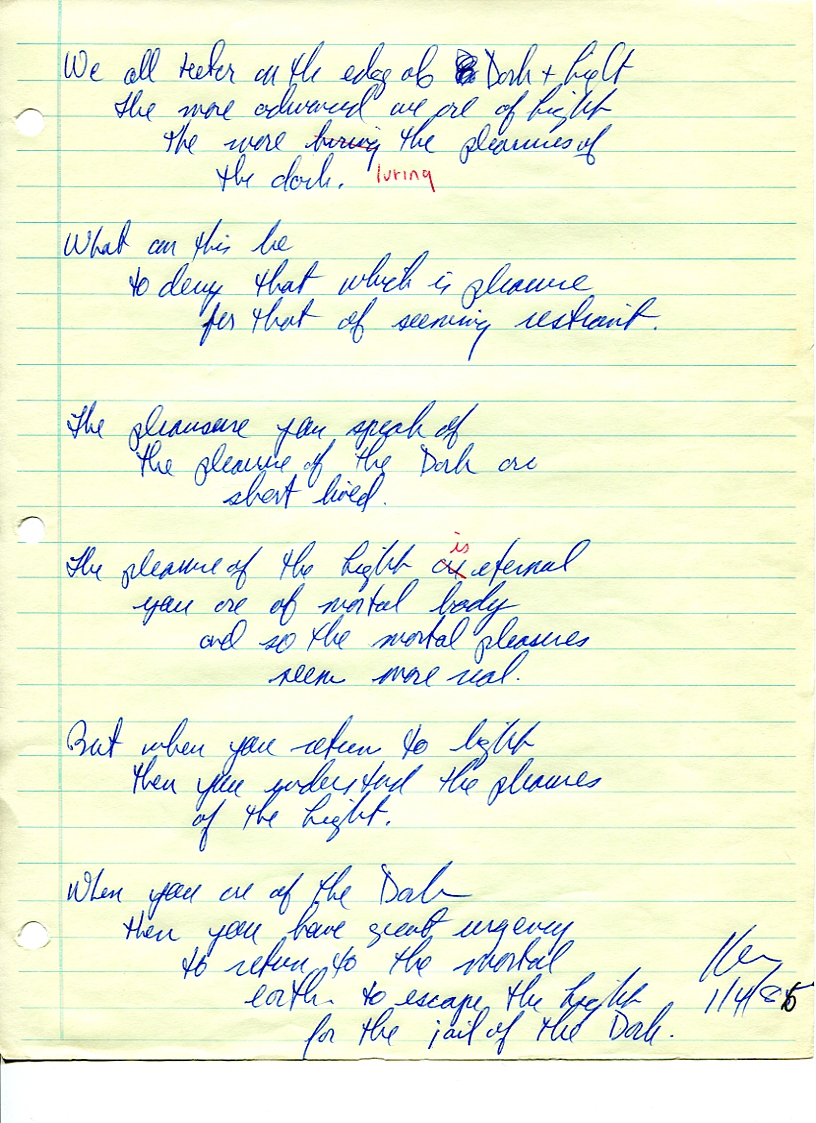 We all teeter on the edge of Dark + Light
the more advanced we are of Light
the more luring the pleasures of
the dark. luring
What can this be
to deny that which is pleasure
for that of seeming restraint.
The pleausure you speak of
the pleasure of the Dark are
short lived.
is
The pleasure of the Light are eternal
you are of mortal body
and so the mortal pleasures
seem more real.
But when you return to light
then you understand the pleasures
of the Light.
When you are of the Dark
then you have great urgency
to return to the mortal
earth to escape the Light
for the jail of the Dark.
Ken
1/4/85